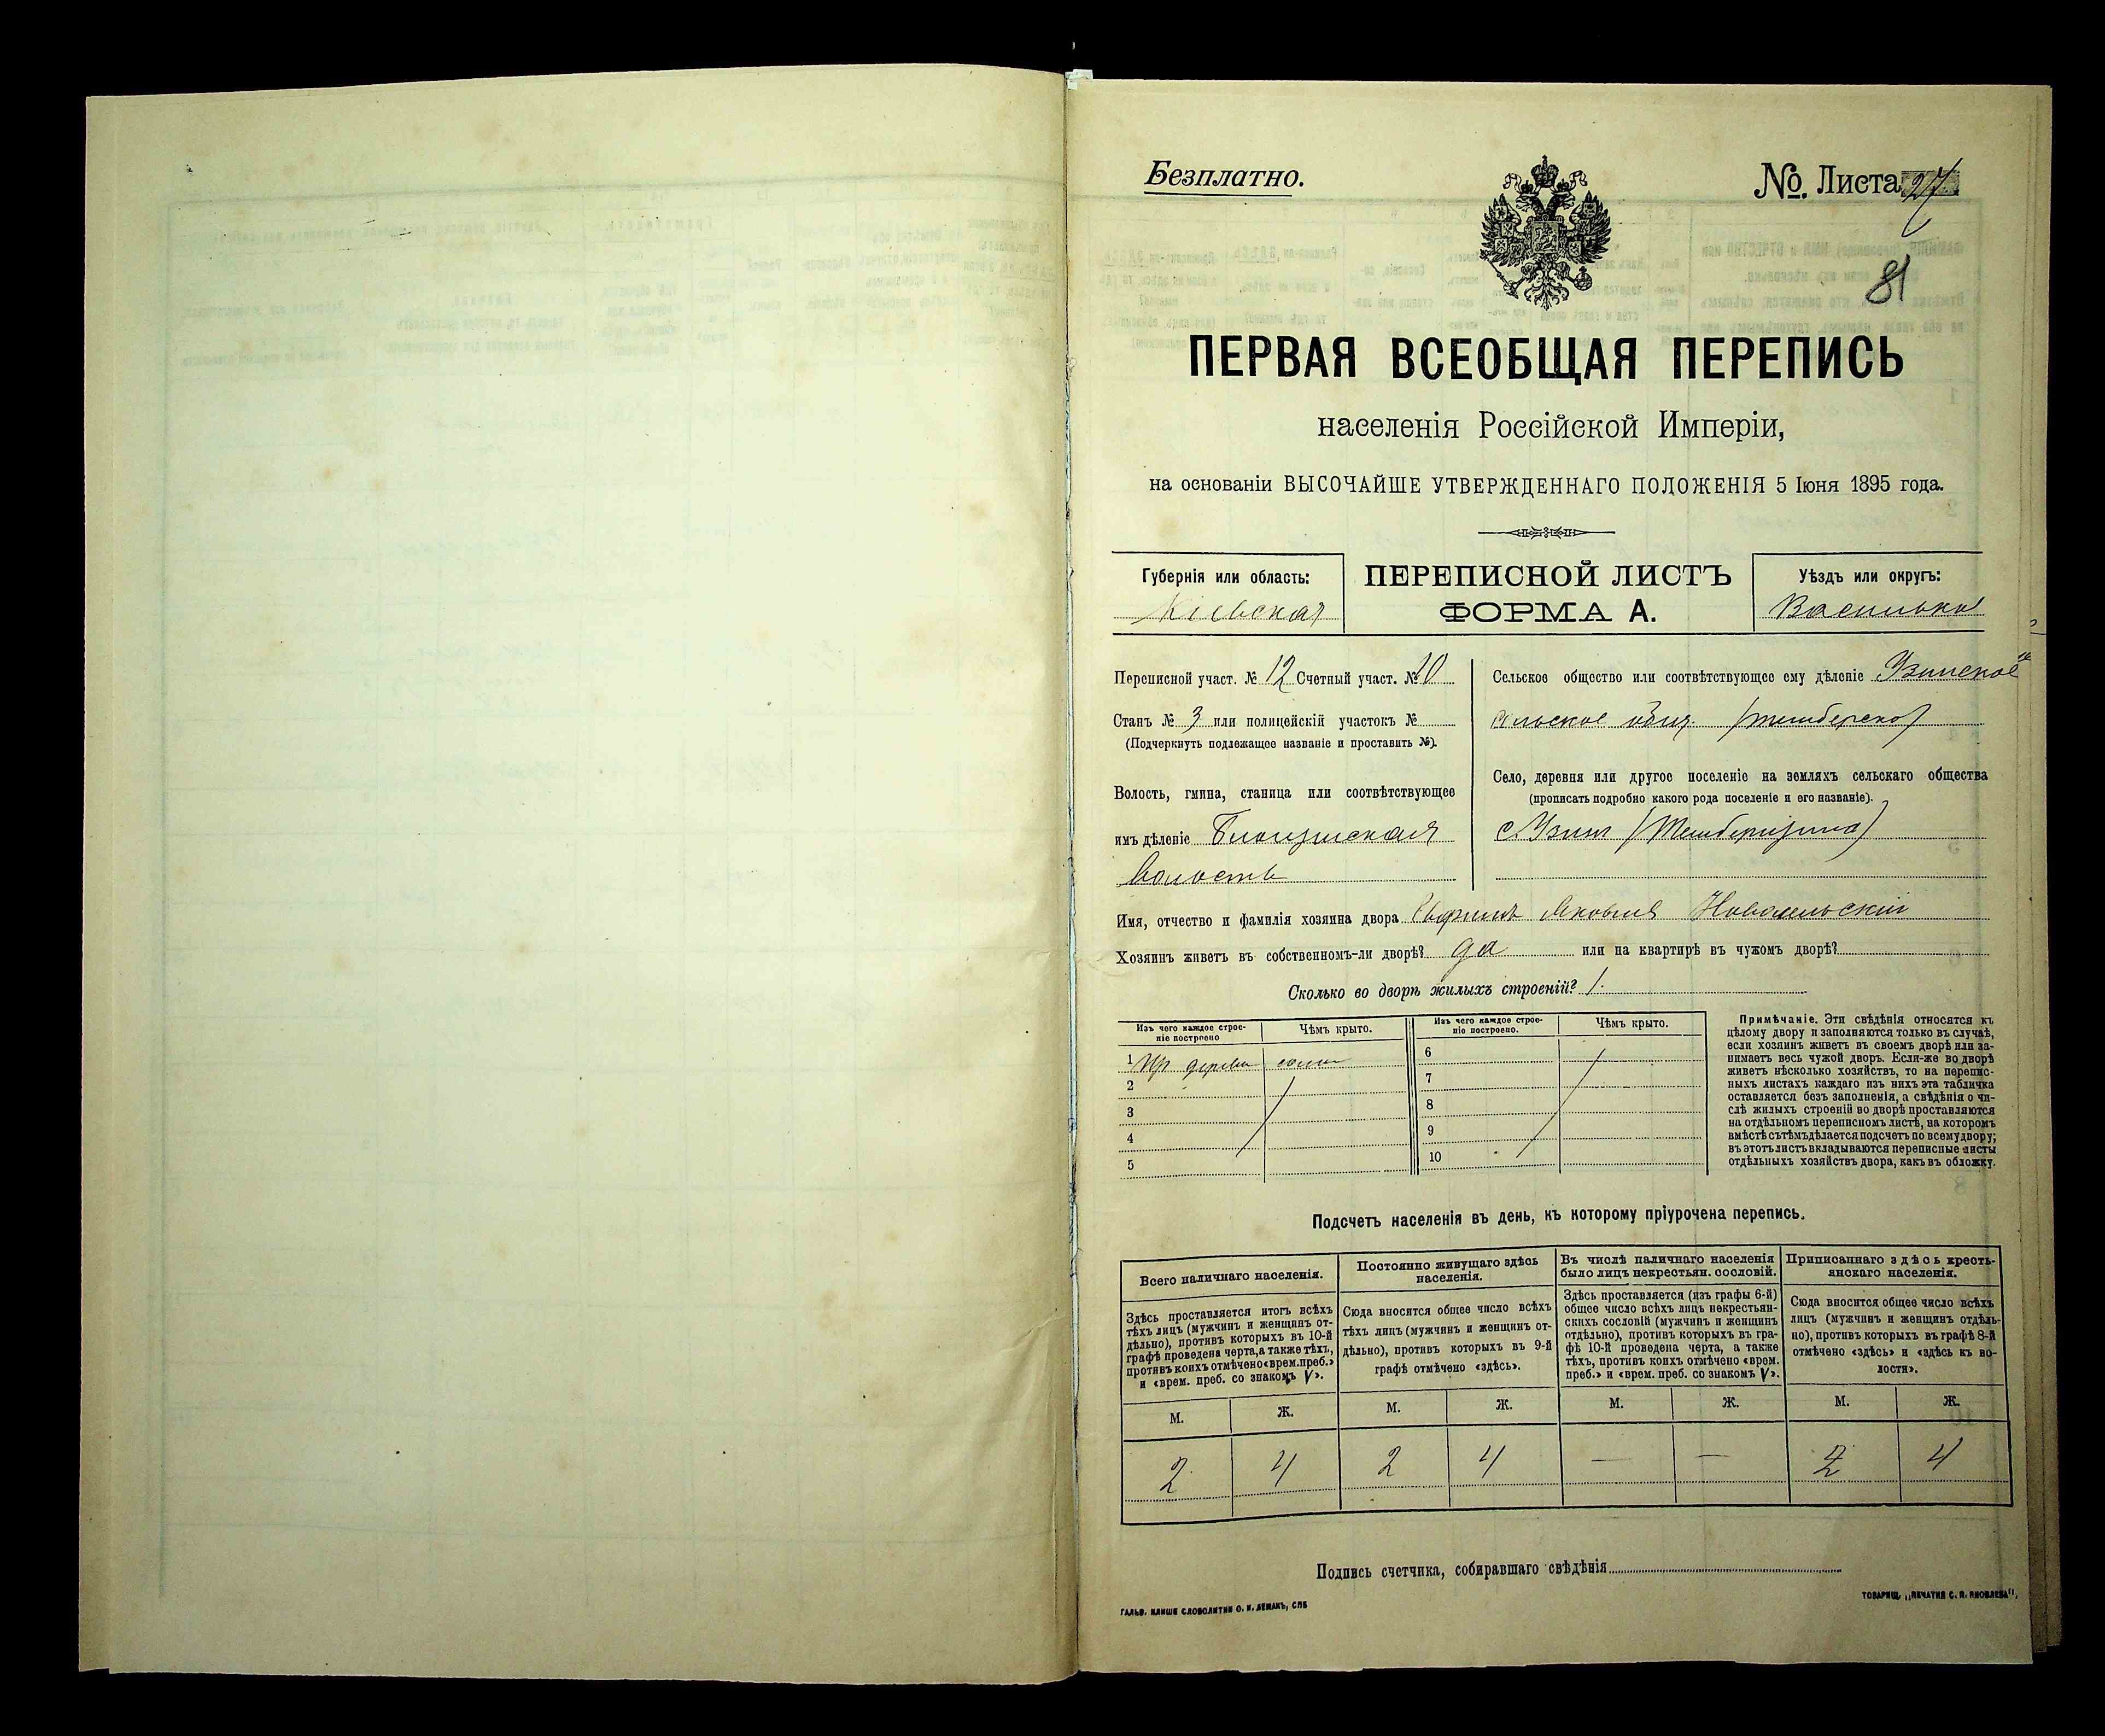 Безплатно.
№. Листа 27
81
ПЕРВАЯ ВСЕОБЩАЯ ПЕРЕПИСЬ
населенія Россійской Имперіи,
на основаніи ВЫСОЧАЙШЕ УТВЕРЖДЕННАГО ПОЛОЖЕНІЯ 5 Іюня 1895 года.
Губернія или область:
Кіевская
ПЕРЕПИСНОЙ ЛИСТЪ
ФОРМА А.
Уѣздъ или округъ:
Васильков
Переписной участ. № 12 Счетный участ. № 10
Станъ № 3 или полицейскій участокъ №
(Подчеркнуть подлежащее названіе и проставить №).
Волость, гмина, станица или соотвѣтствующее
имъ дѣленіе
волость
Сельское общество или соотвѣтствующее ему дѣленіе Узинское
Село, деревня или другое поселеніе на земляхъ сельскаго общества
(прописать подробно какого рода поселеніе и его названіе).
с. Узин
Имя, отчество и фамилія хозяина двора Яковлев Новосельскій
Хозяинъ живетъ въ собственномъ-ли дворѣ? да или на квартирѣ въ чужомъ дворѣ?
Сколько во дворѣ жилыхъ строеній? 1.
Изъ чего каждое строе-
ніе построено
Чѣмъ крыто.
Изъ чего каждое строе-
ніе построено.
Чѣмъ крыто.
1 Из дерева солом
2
3
4
5
6
7
8
9
10
Примѣчаніе. Эти свѣдѣнія относятся къ
цѣлому двору и заполняются только въ случаѣ,
если хозяинъ живетъ въ своемъ дворѣ или за-
нимаетъ весь чужой дворъ. Если-же во дворѣ
живетъ нѣсколько хозяйствъ, то на перепис-
ныхъ листахъ каждаго изъ нихъ эта табличка
оставляется безъ заполненія, а свѣдѣнія о чи-
слѣ жилыхъ строеній во дворѣ проставляются
на отдѣльномъ переписномъ листѣ, на которомъ
вмѣстѣ съ тѣмъ дѣлается подсчетъ по всему двору;
въ этотъ листъ вкладываются переписные листы
отдѣльныхъ хозяйствъ двора, какъ въ обложку.
Подсчетъ населенія въ день, къ которому пріурочена перепись.
Всего наличнаго населенія.
Постоянно живущаго здѣсь
населенія.
Въ числѣ наличнаго населенія
было лицъ некрестьян. сословій.
Приписаннаго здѣсь кресть-
янскаго населенія.
Здѣсь проставляется итогъ всѣхъ
тѣхъ лицъ (мужчинъ и женщинъ от-
дѣльно), противъ которыхъ въ 10-й
графѣ проведена черта, а также тѣхъ,
противъ коихъ отмѣчено «врем. преб.»
и «врем. преб. со знакомъ V».
Сюда вносится общее число всѣхъ
тѣхъ лицъ (мужчинъ и женщинъ от-
дѣльно), противъ которыхъ въ 9-й
графѣ отмѣчено «здѣсь».
Здѣсь проставляется (изъ графы 6-й)
общее число всѣхъ лицъ некрестьян-
скихъ сословій (мужчинъ и женщинъ
отдѣльно), противъ которыхъ въ гра-
фѣ 10-й проведена черта, а также
тѣхъ, противъ коихъ отмѣчено «врем.
преб.» и «врем. преб. со знакомъ V».
Сюда вносится общее число всѣхъ
лицъ (мужчинъ и женщинъ отдѣль-
но), противъ которыхъ въ графѣ 8-й
отмѣчено «здѣсь» и «здѣсь къ во-
лости».
М. Ж. М. Ж. М. Ж. М. Ж.
2 4 2 4 — — 2 4
Подпись счетчика, собиравшаго свѣдѣнія
ГАЛЬВ. КЛИШЕ СЛОВОЛИТНИ О. И. ЛЕМАНЪ, СПБ
ТОВАРИЩ. „ПЕЧАТНЯ С. П. ЯКОВЛЕВА".